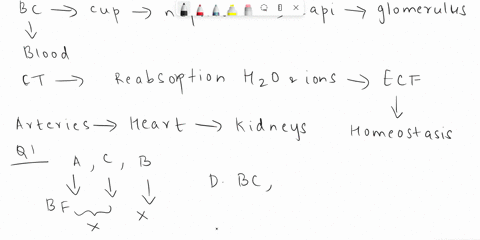 BC → cup → → glomerulus
↓
Blood
CT → Reabsorption H2O & ions → ECF
↓
Arteries → Heart → Kidneys Homeostasis
Q1
A, C, B
↓ ↓ ↓
D. BC,
BF X
X